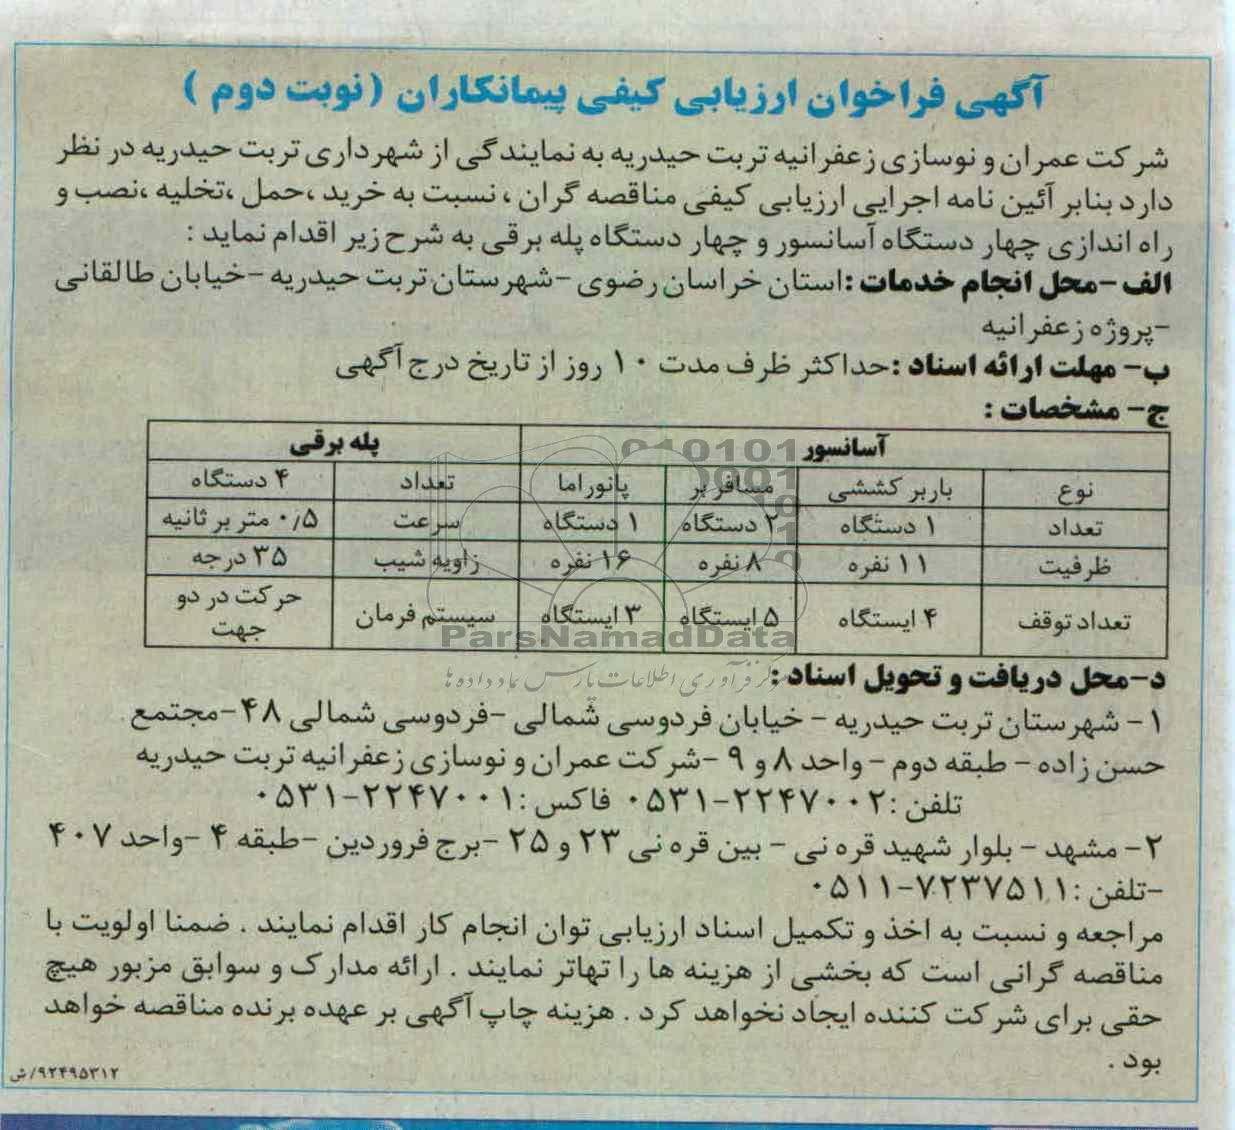 آگهی فراخوان ارزیابی کیفی پیمانکاران (نوبت دوم)
شرکت عمران و نوسازی زعفرانیه تربت حیدریه به نمایندگی از شهرداری تربت حیدریه در نظر
دارد بنابر آئین نامه اجرایی ارزیابی کیفی مناقصه گران ، نسبت به خرید ،حمل ،تخلیه ،نصب و
راه اندازی چهار دستگاه آسانسور و چهار دستگاه پله برقی به شرح زیر اقدام نماید :
الف -محل انجام خدمات :استان خراسان رضوی -شهرستان تربت حیدریه -خیابان طالقانی
-پروژه زعفرانیه
ب- مهلت ارائه اسناد :حداکثر ظرف مدت ۱۰ روز از تاریخ درج آگهی
ج- مشخصات :
آسانسور پله برقی
نوع باربر کششی مسافر بر پانوراما تعداد ۴ دستگاه
تعداد ۱ دستگاه ۲ دستگاه ۱ دستگاه سرعت ۰/۵ متر بر ثانیه
ظرفیت ۱۱ نفره ۸ نفره ۱۶ نفره زاویه شیب ۳۵ درجه
تعداد توقف ۴ ایستگاه ۵ ایستگاه ۳ ایستگاه سیستم فرمان حرکت در دو
جهت
ParsNamadData
د-محل دریافت و تحویل اسناد :
۱- شهرستان تربت حیدریه - خیابان فردوسی شمالی -فردوسی شمالی ۴۸-مجتمع
حسن زاده - طبقه دوم - واحد ۸ و ۹ -شرکت عمران و نوسازی زعفرانیه تربت حیدریه
تلفن :۲۲۴۷۰۰۲-۰۵۳۱ فاکس :۲۲۴۷۰۰۱-۰۵۳۱
۲- مشهد - بلوار شهید قره نی - بین قره نی ۲۳ و ۲۵ -برج فروردین -طبقه ۴ -واحد ۴۰۷
-تلفن :۷۲۳۷۵۱۱-۰۵۱۱
مراجعه و نسبت به اخذ و تکمیل اسناد ارزیابی توان انجام کار اقدام نمایند . ضمنا اولویت با
مناقصه گرانی است که بخشی از هزینه ها را تهاتر نمایند . ارائه مدارک و سوابق مزبور هیچ
حقی برای شرکت کننده ایجاد نخواهد کرد . هزینه چاپ آگهی بر عهده برنده مناقصه خواهد
بود .
۹۲۴۹۵۳۱۲/ش